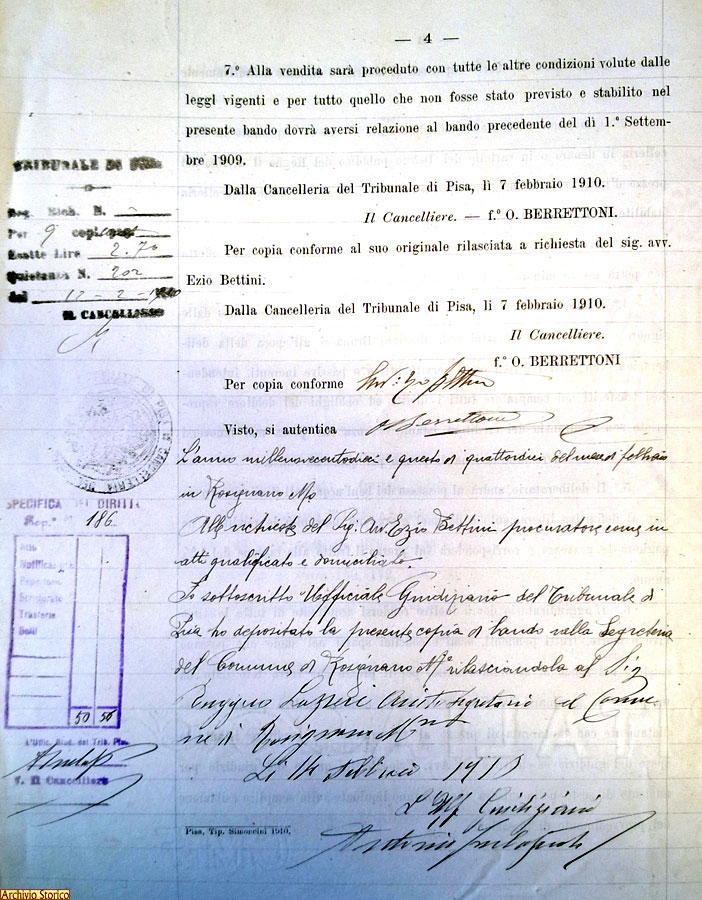 — 4 —
7.º Alla vendita sarà proceduto con tutte le altre condizioni volute dalle
leggi vigenti e per tutto quello che non fosse stato previsto e stabilito nel
presente bando dovrà aversi relazione al bando precedente del dì 1.º Settem-
bre 1909.
Dalla Cancelleria del Tribunale di Pisa, lì 7 febbraio 1910.
Il Cancelliere. — f.º O. BERRETTONI.
Per copia conforme al suo originale rilasciata a richiesta del sig. avv.
Ezio Bettini.
Dalla Cancelleria del Tribunale di Pisa, lì 7 febbraio 1910.
Il Cancelliere.
f.º O. BERRETTONI
Per copia conforme
Visto, si autentica O Berrettoni
L'anno millenovecentodieci e questo dì quattordici del mese di febbraio
in Rosignano Mo
Alla richiesta del Sig. Av. Ezio Bettini procuratore come in
atti qualificato e domiciliato.
Io sottoscritto Uofficiale Giudiziario del Tribunale di
Pisa ho depositato la presente copia di bando nella Segreteria
del Comune di Rosignano Mo rilasciandola al Sig
Lazzeri Segretario del Comu-
ne di Rosignano
Lì 14 Febbraio 1910
L'Uff Giudiziario
Antonio
Pisa, Tip. Simoncini 1910.
TRIBUNALE DI PISA
Reg. Rich. N.
Per 9 copi
Esatte Lire 2.70
Quietanza N. 202
dal 12 - 2 - 1910
IL CANCELLIERE
SPECIFICA DEI DIRITTI
Rep.º 186
Notific
Trasferte
50 50
L'Uffic. Giud. del Trib. Pisa
V. Il Cancelliere
Archivio Storico